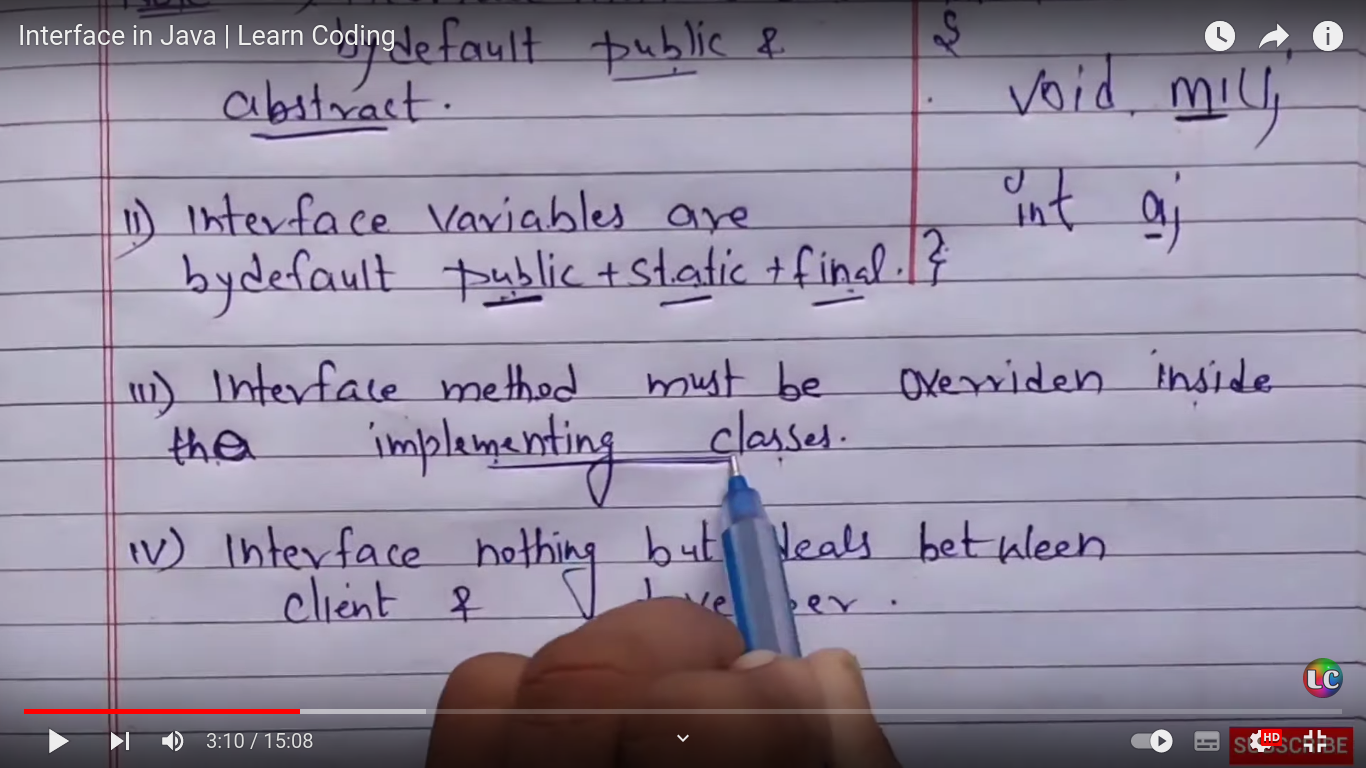 Interface in Java | Learn Coding
bydefault public &
abstract.
void m1();
int a;
II) Interface variables are
bydefault public + static + final.
}
III) Interface method must be overriden inside
the implementing classes.
IV) Interface nothing but deals between
client &
LC
3:10 / 15:08
HD
SUBSCRIBE